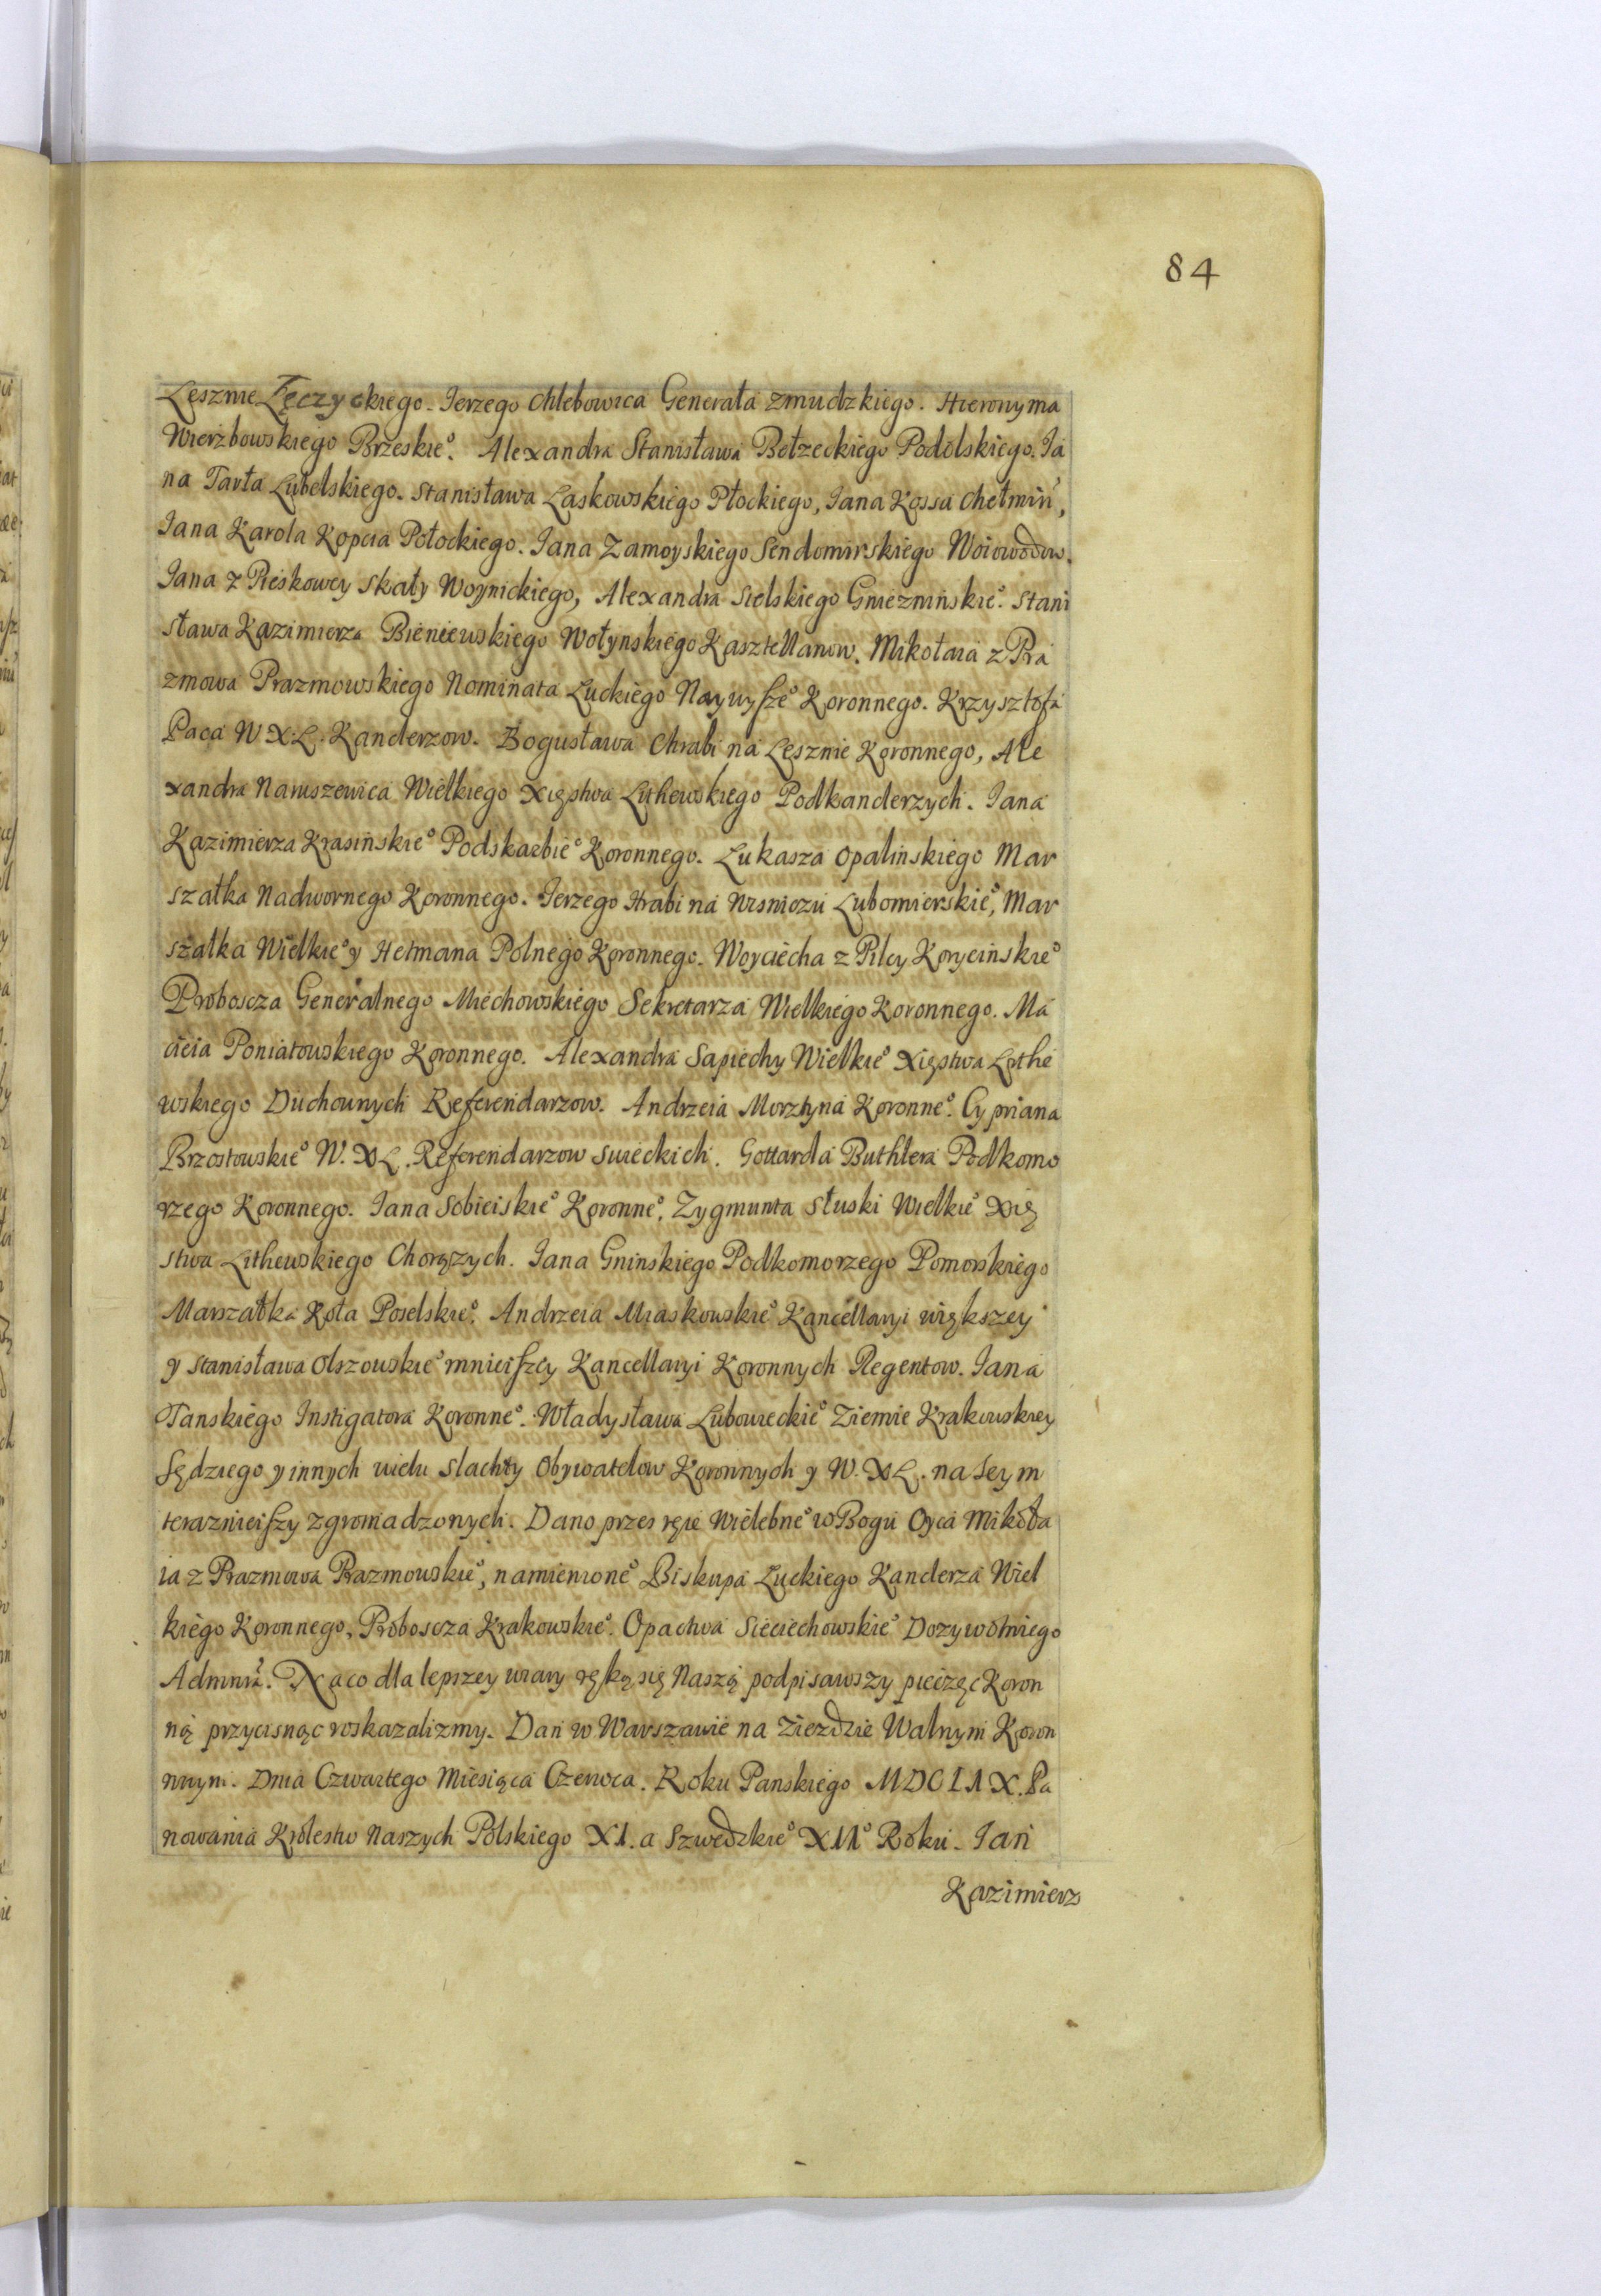 84
Lesznie Lęczyckiego. Ierzego Chlebowica Generała Zmudzkiego. Hieronyma
Wierzbowskiego Brzeskieº. Alexandra Stanisława Bełzeckiego Podolskiego. Ia
na Tarła Lubelskiego. Stanisława Laskowskiego Płockiego, Iana Kossa Chełmiń,
Iana Karola Kopcia Połockiego. Iana Zamoyskiego Sendomirskiego Woiowodow.
Iana z Pieskowey Skały Woynickiego, Alexandra Sielskiego Gnieznińskieº. Stani
sława Kazimierza Bieniewskiego Wołynskiego Kasztellanow. Mikołaia z Pra
zmowa Prazmowskiego Nominata Luckiego Naywyszeº Koronnego. Krzysztofa
Paca W X. L. Kanclerzow. Bogusława Chrabi na Lesznie Koronnego, Ale
xandra Naruszewica Wielkiego Xięstwa Lithewskiego Podkanclerzych. Iana
Kazimierza Krasińskieº Podskarbieº Koronnego. Lukasza Opalińskiego Mar
szałka Nadwornego Koronnego. Ierzego Hrabi na Wisniczu Lubomierskieº, Mar
szałka Wielkieº y Hetmana Polnego Koronnego. Woyciecha z Pilcy Korycińskieº
Proboscza Generalnego Miechowskiego Sekretarza Wielkiego Koronnego. Ma
cieia Poniatowskiego Koronnego. Alexandra Sapiechy Wielkieº Xięstwa Lithe
wskiego Duchownych Referendarzow. Andrzeia Morztyna Koronneº. Cypriana
Brzostowskieº W. X L. Referendarzow Swieckich. Gottarda Buthlera Podkomo
rzego Koronnego. Iana Sobieiskieº Koronneº. Zygmunta Słuski Wielkieº Xię
stwa Lithewskiego Chorązych. Iana Gninskiego Podkomorzego Pomorskiego
Marszałka Koła Poselskieº. Andrzeia Miaskowskieº Kancellaryi większey
y Stanisława Olszowskieº mnieiszey Kancellaryi Koronnych Regentow. Iana
Tanskiego Instigatora Koronneº. Władysława Lubowieckieº Ziemie Krakowskiey
Sędziego y innych wielu Slachty Obywatelow Koronnych y W. X L. na Seym
teraznieiszy zgromadzonych. Dano przes ręce Wielebneº w Bogu Oyca Mikoła
ia z Prazmowa Prazmowskieº, namienioneº Biskupa Luckiego Kanclerza Wiel
kiego Koronnego, Proboscza Krakowskieº. Opactwa Sieciechowskieº Dozywotniego
Admin̄ra. Na co dla lepszey wiary ręką się Naszą podpisawszy pieczęc Koron
ną przycisnąc roskazalizmy. Dań w Warszawie na Ziezdzie Walnym Koron
nnym. Dnia Czwartego Miesiąca Czerwca. Roku Panskiego MDCLIX. Pa
nowania Krolestw Naszych Polskiego XI. a Szwedzkieº XIIº Roku. Ian
Kazimierz